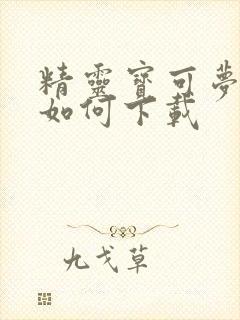 精靈寶可夢
如何下載
九戈草